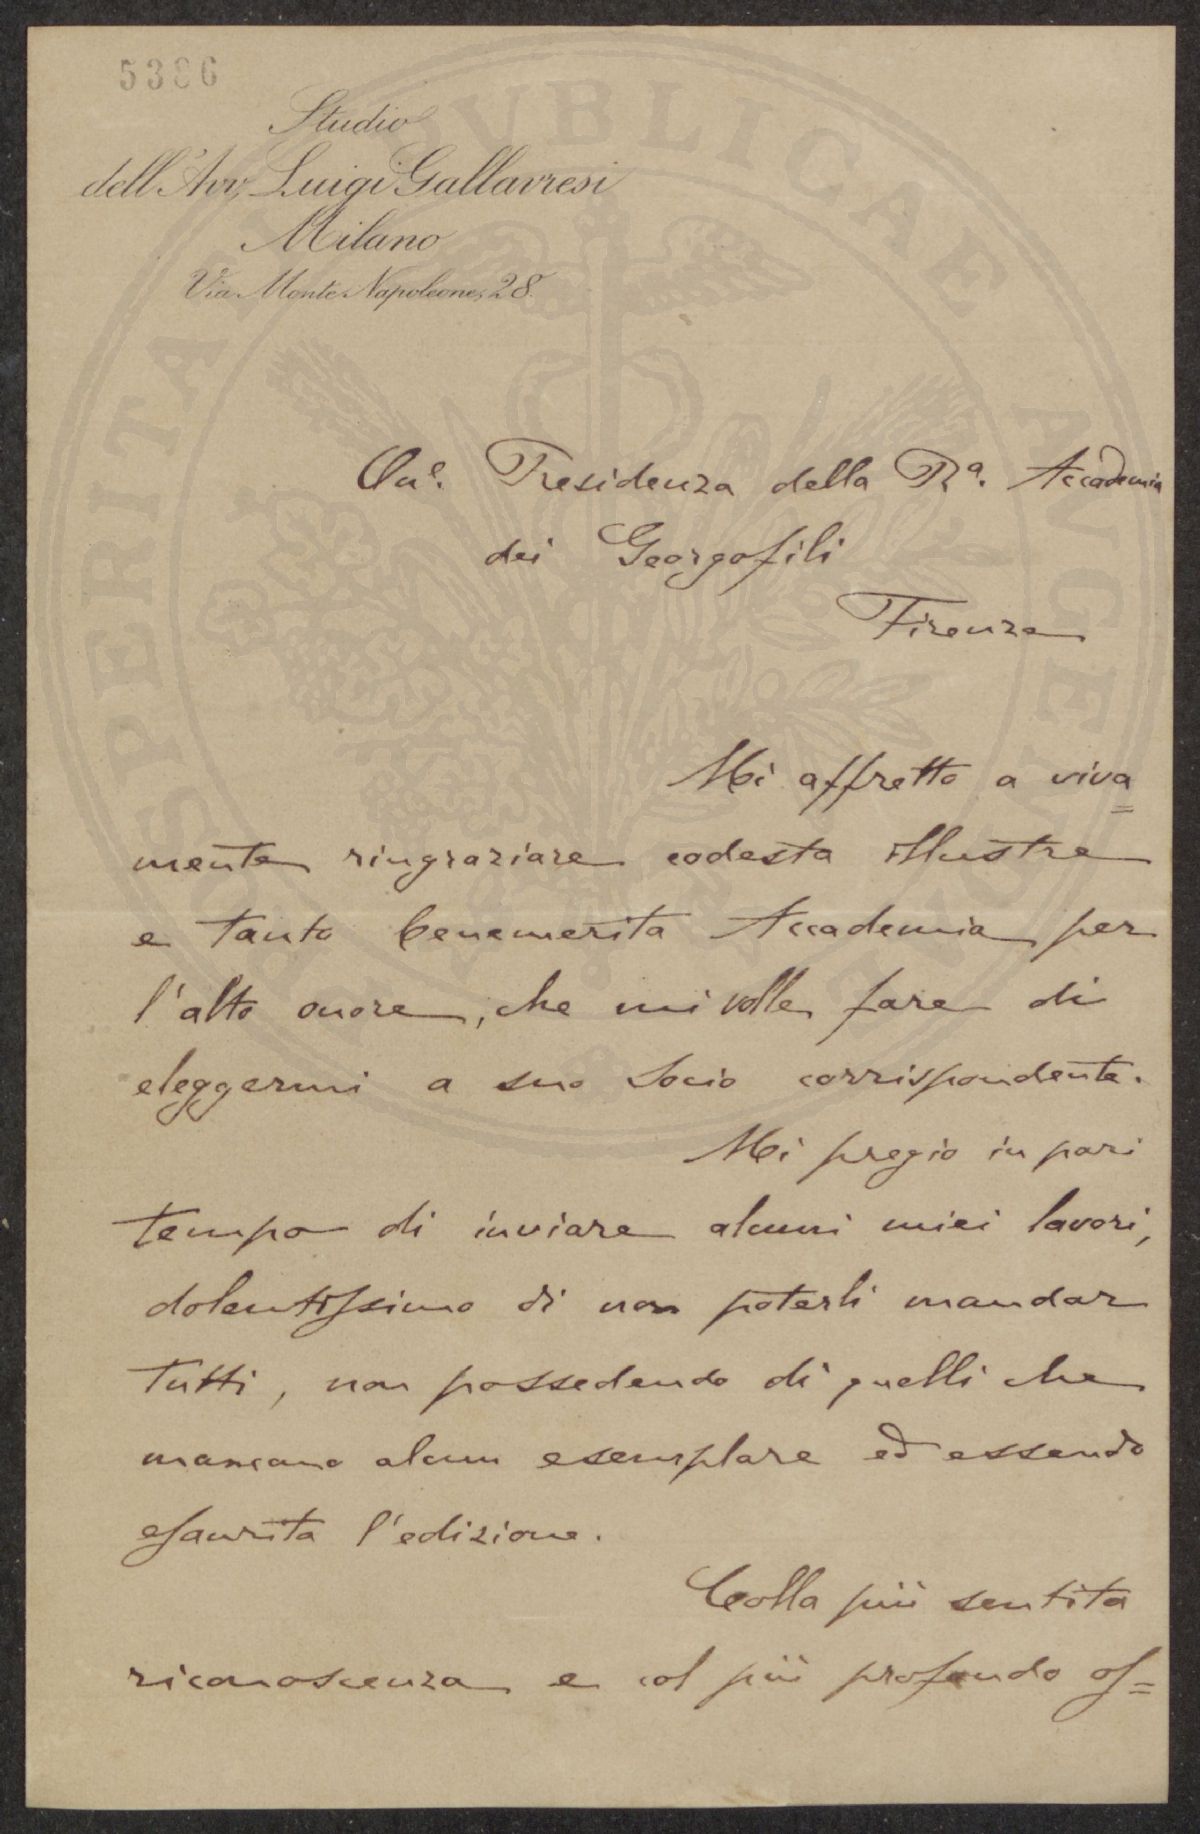 5386
Studio
dell'Avv. Luigi Gallavresi
Milano
Via Monte Napoleone, 28.
On.e Presidenza della R.a Accademia
dei Georgofili
Firenze
Mi affretto a viva=
mente ringraziare codesta illustre
e tanto benemerita Accademia per
l'alto onore, che mi volle fare di
eleggermi a suo Socio corrispondente.
Mi pregio in pari
tempo di inviare alcuni miei lavori,
dolentissimo di non poterli mandar
tutti, non possedendo di quelli che
mancano alcun esemplare ed essendo
esaurita l'edizione.
Colla più sentita
riconoscenza e col più profondo os=
PROSPERITATI PVBLICAE AVGENDAE